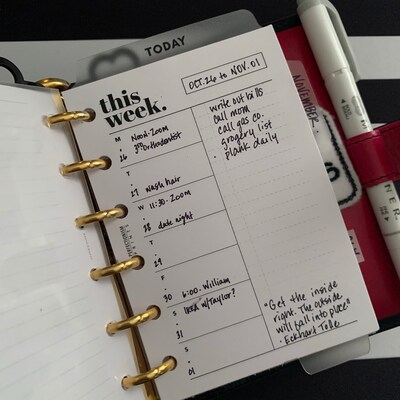 TODAY
this
week.
OCT. 26 to NOV. 01
M Noon-Zoom
26 3:30 Orthodontist
T
27 wash hair
W 11:30. Zoom
28 date night
T
29
F
30 6:00. William
S
31
S
01
write out bills
call mom
call gas co.
grocery list
plank daily
"Get the inside
right. The outside
will fall into place"
· Eckhart Tolle
NOVEMBER